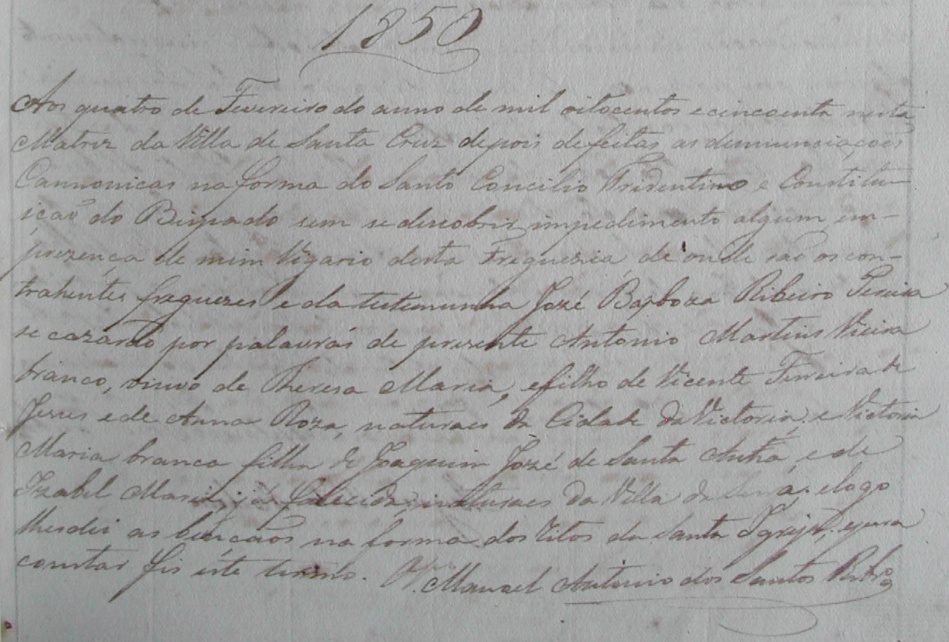 1850
Aos quatro de Fevereiro do anno de mil oitocentos e cincoenta nesta
Matriz da Villa de Santa Cruz depois de feitas as denunciaçoes
Cannonicas na forma do Santo Concilio Tridentino e Constitu-
içaõ do Bispado sem se descobrir impedimento algum, em-
prezença de mim Vigario desta Freguezia, de onde saõ os con-
trahentes freguezes e da testemunha José Barboza Ribeiro Pereira
se cazaraõ por palavras de prezente Antonio Martins Vieira
branco, viuvo de Theresa Maria, e filho de Vicente Ferreira de
Jezus e de Anna Roza, naturaes da Cidade da Victoria: e Victoria
Maria branca filha de Joaquim José de Santa Anna, e de
Izabel Maria já falecida, naturaes da Villa da e logo
lhes dei as bençaõs na forma dos Ritos da Santa Igreja, e para
constar fis este termo. Manoel Antonio dos Santos Ribrº